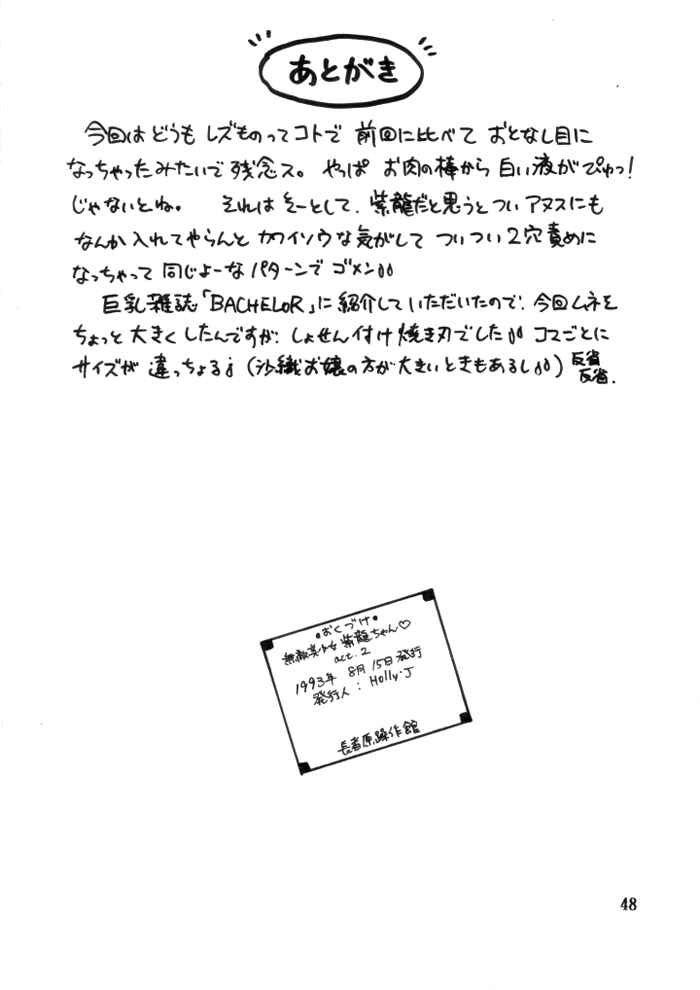 あとがき
今回はどうも レズものってコトで 前回に比べて おとなし目に
なっちゃったみたいで残念ス。 やっぱ お肉の棒から 白い液がぴゅっ!
じゃないとね。 それはそーとして、紫龍だと思うとつい アヌスにも
なんか入れてやらんと カワイソウな気がして ついつい2穴責めに
なっちゃって 同じよーなパターンで ゴメン
巨乳雑誌「BACHELOR」に紹介していただいたので、今回ムネを
ちょっと大きくしたんですが、しょせん付け焼き刃でした コマごとに
サイズが 違っちょる (沙織お嬢の方が大きいときもあるし) 反省
反省.
•おくづけ•
無敵美少女 紫龍ちゃん♡
act.2
1993年 8月 15日発行
発行人 : Holly・J
長者原操作館
48